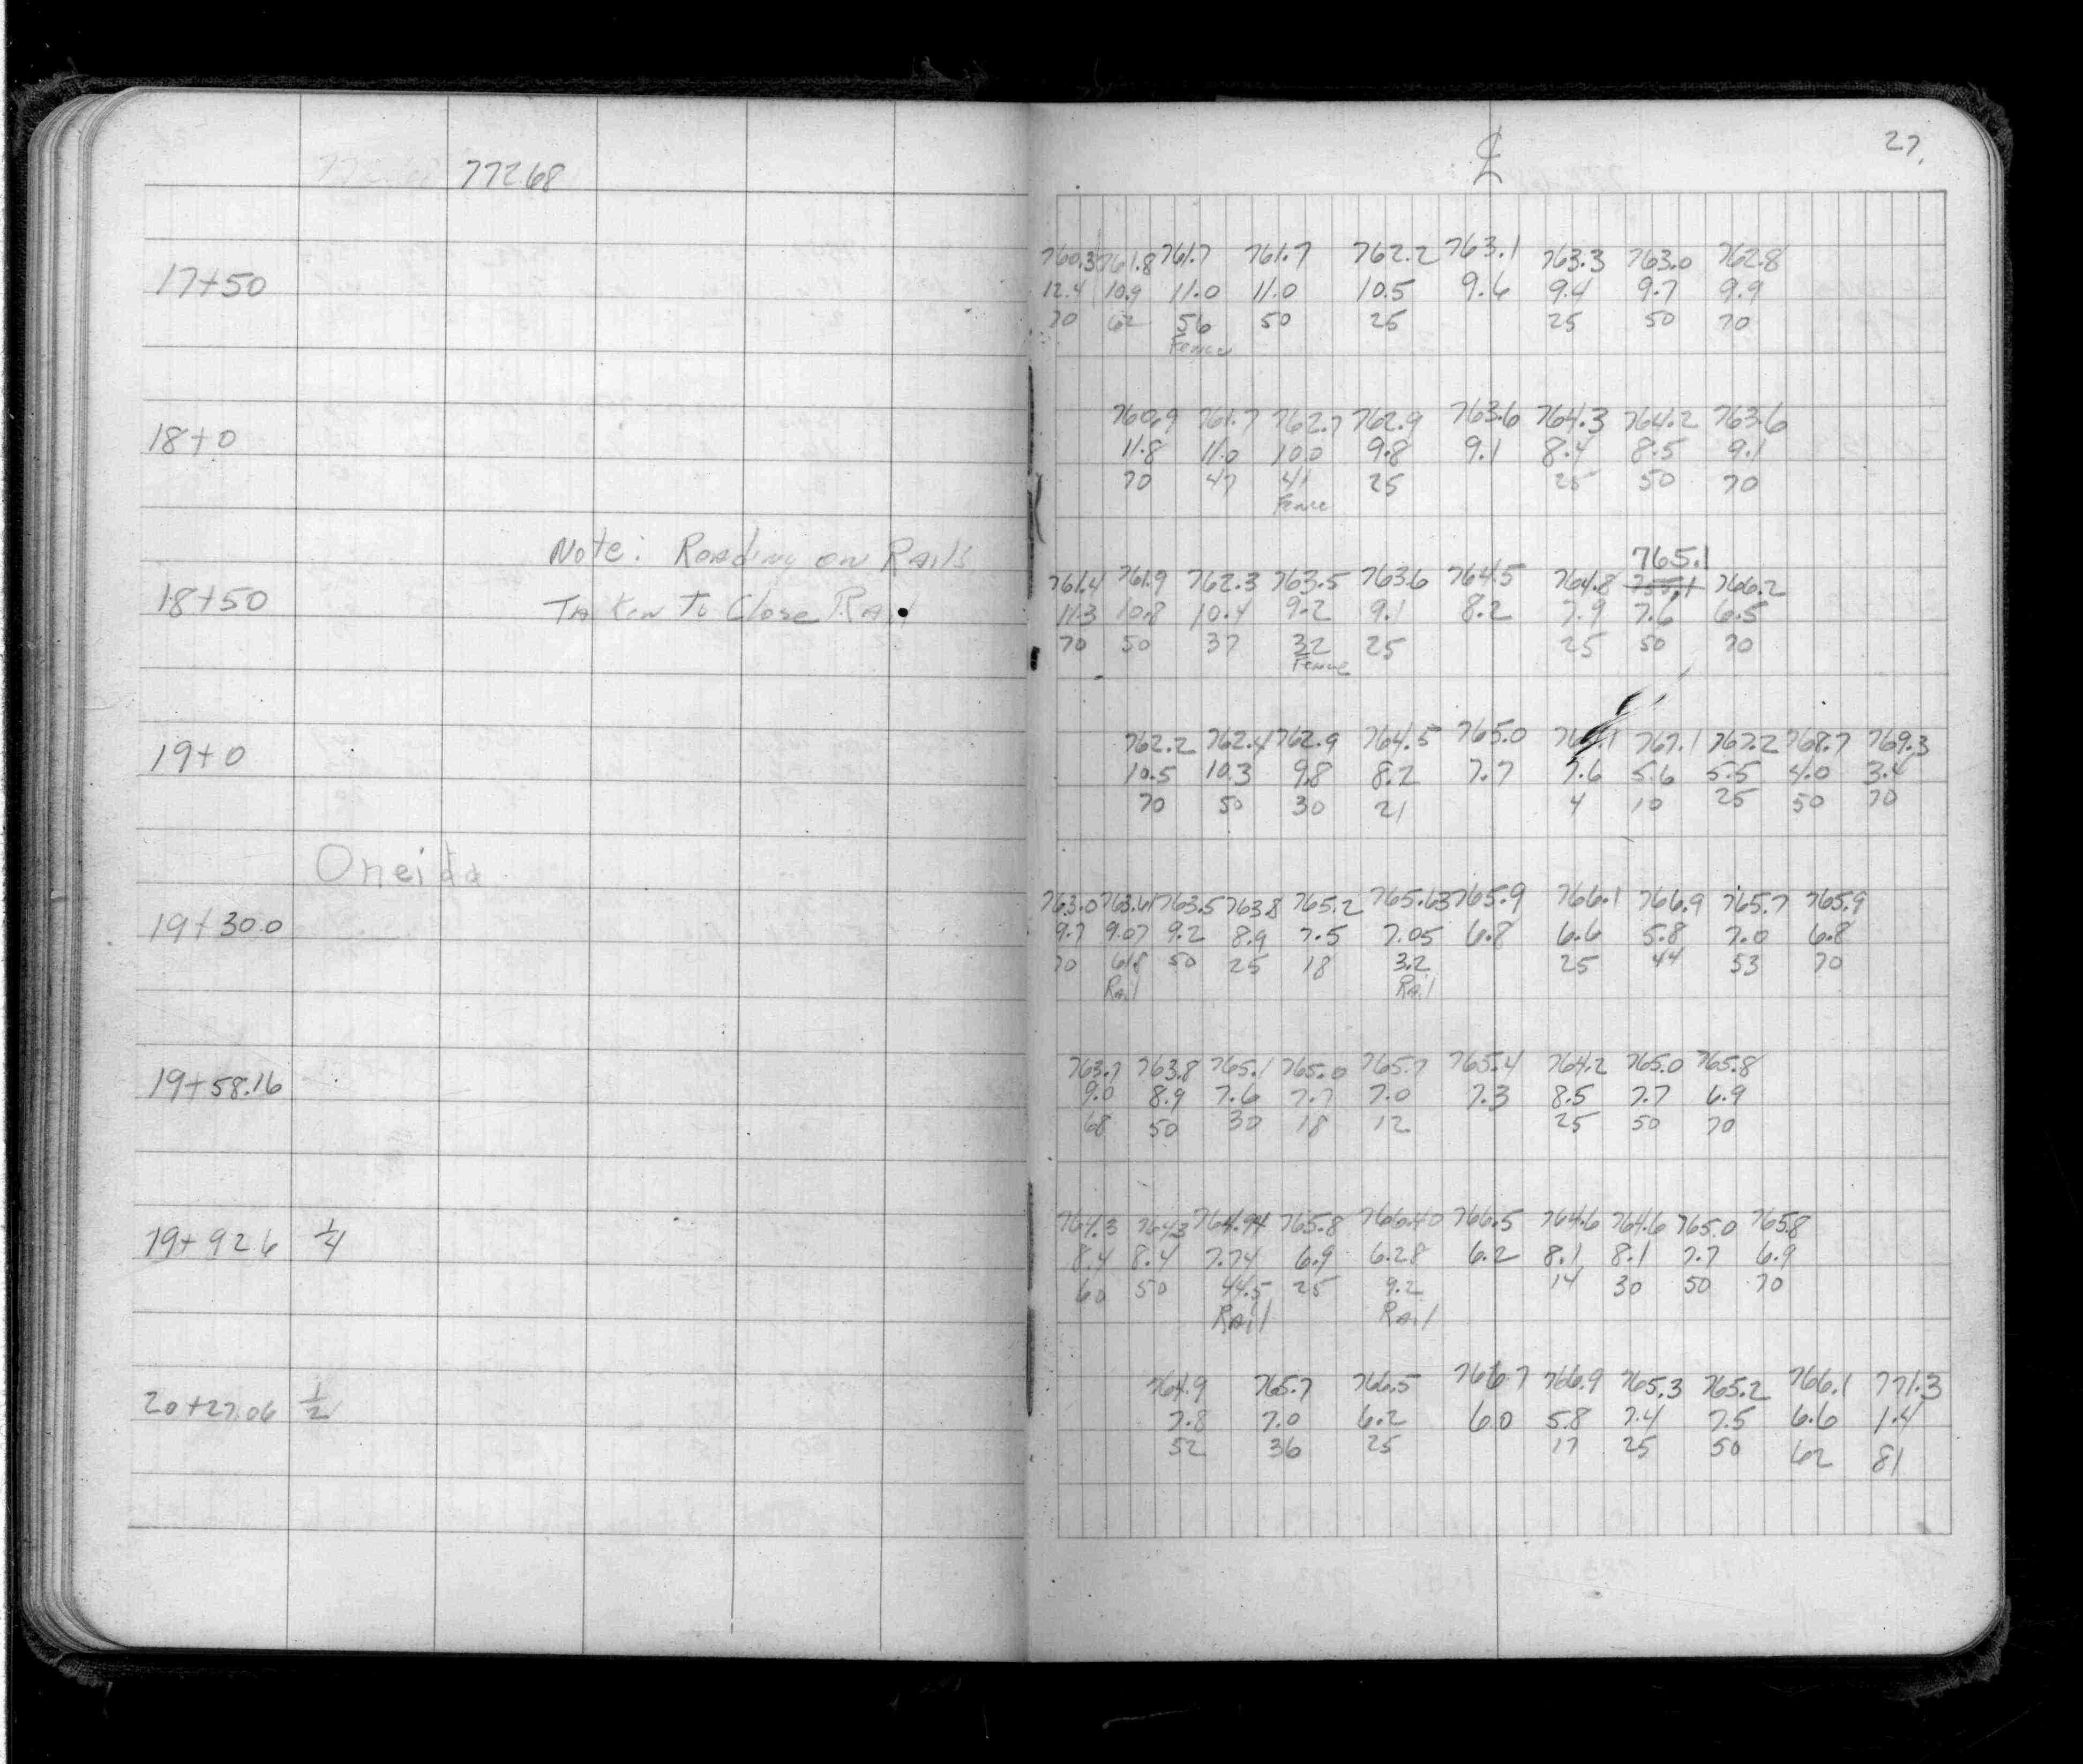 77268
27.
℄
17+50
760.3 761.8 761.7 761.7 762.2 763.1 763.3 763.0 762.8
12.4 10.9 11.0 11.0 10.5 9.6 9.4 9.7 9.9
70 62 56 50 25 25 50 70
Fence
18+0
760.9 761.7 762.7 762.9 763.6 764.3 764.2 763.6
11.8 11.0 10.0 9.8 9.1 8.4 8.5 9.1
70 47 41 25 25 50 70
Fence
Note: Reading on Rails
Taken To Close Rail
765.1
18+50
761.4 761.9 762.3 763.5 763.6 764.5 764.8 755.1 766.2
11.3 10.8 10.4 9.2 9.1 8.2 7.9 7.6 6.5
70 50 37 32 25 25 50 70
Fence
19+0
762.2 762.4 762.9 764.5 765.0 767.1 767.2 768.7 769.3
10.5 10.3 9.8 8.2 7.7 7.6 5.6 5.5 4.0 3.4
70 50 30 21 4 10 25 50 70
Oneida
19+30.0
763.0 763.61 763.5 763.8 765.2 765.63 765.9 766.1 766.9 765.7 765.9
9.7 9.07 9.2 8.9 7.5 7.05 6.8 6.6 5.8 7.0 6.8
70 61.8 50 25 18 3.2 25 44 53 70
Rail Rail
19+58.16
763.7 763.8 765.1 765.0 765.7 765.4 764.2 765.0 765.8
9.0 8.9 7.6 7.7 7.0 7.3 8.5 7.7 6.9
68 50 30 18 12 25 50 70
19+92.6 1/4
764.3 764.3 764.94 765.8 766.40 766.5 764.6 764.6 765.0 765.8
8.4 8.4 7.74 6.9 6.28 6.2 8.1 8.1 7.7 6.9
60 50 44.5 25 9.2 14 30 50 70
Rail Rail
20+27.06 1/2
764.9 765.7 766.5 766.7 766.9 765.3 765.2 766.1 771.3
7.8 7.0 6.2 6.0 5.8 7.4 7.5 6.6 1.4
52 36 25 17 25 50 62 81